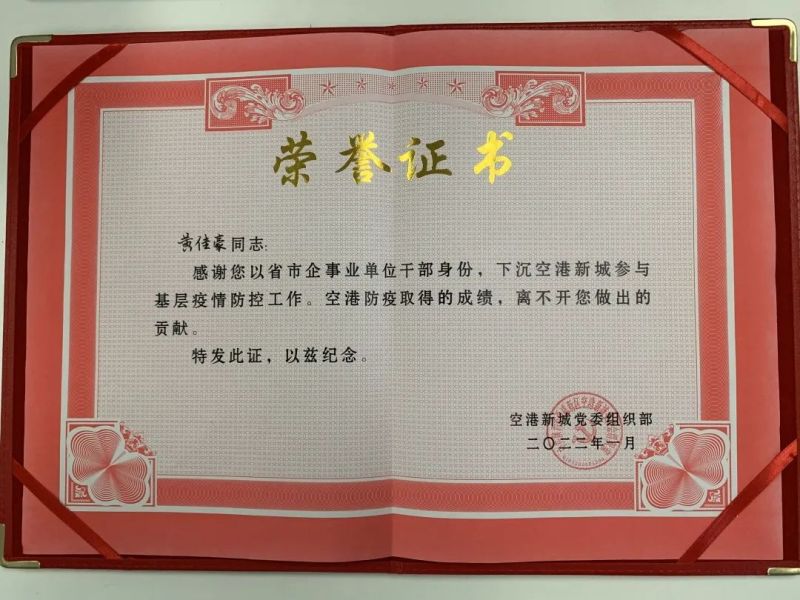 荣誉证书
黄佳豪同志:
感谢您以省市企事业单位干部身份，下沉空港新城参与
基层疫情防控工作。空港防疫取得的成绩，离不开您做出的
贡献。
特发此证，以兹纪念。
空港新城党委组织部
二〇二二年一月